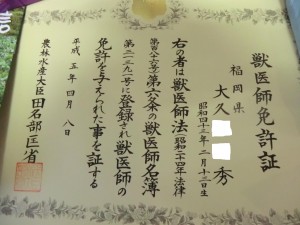 獣医師免許証
福岡県
大久 秀
昭和四十三年二月十三日生
右の者は獣医師法(昭和二十四年法律
第百八十六号)第六条の獣医師名簿
第二二九一号に登録され獣医師の
免許を与えられた事を証する
平成五年四月八日
農林水産大臣田名部匡省